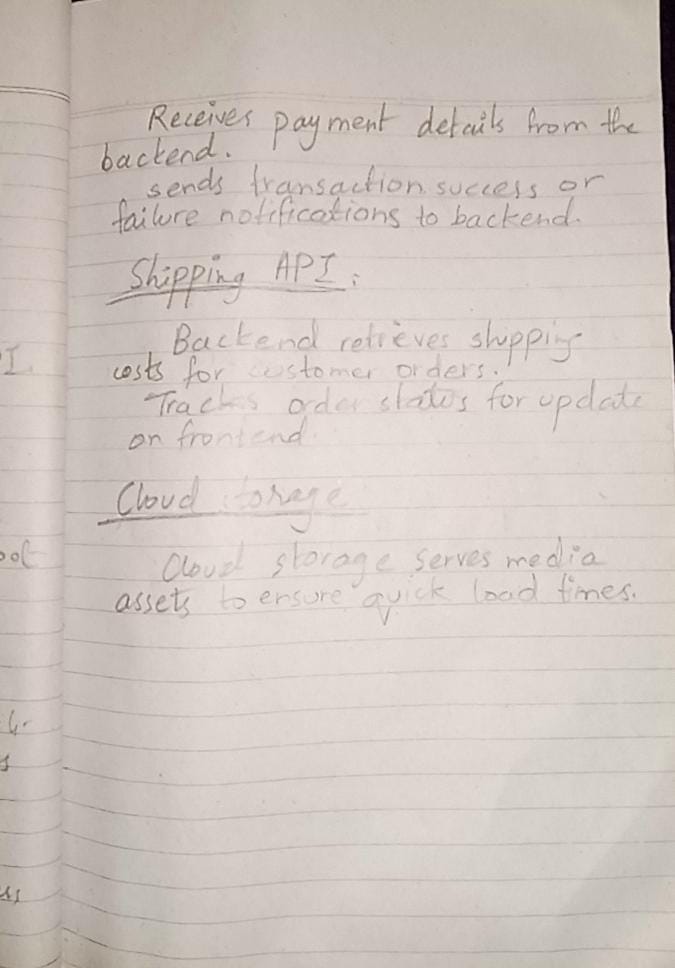 Receives payment details from the
backend.
sends transaction success or
failure notifications to backend.
Shipping API:
Backend retrieves shipping
costs for customer orders.
Tracks order status for update
on frontend.
Cloud storage
Cloud storage serves media
assets to ensure quick load times.